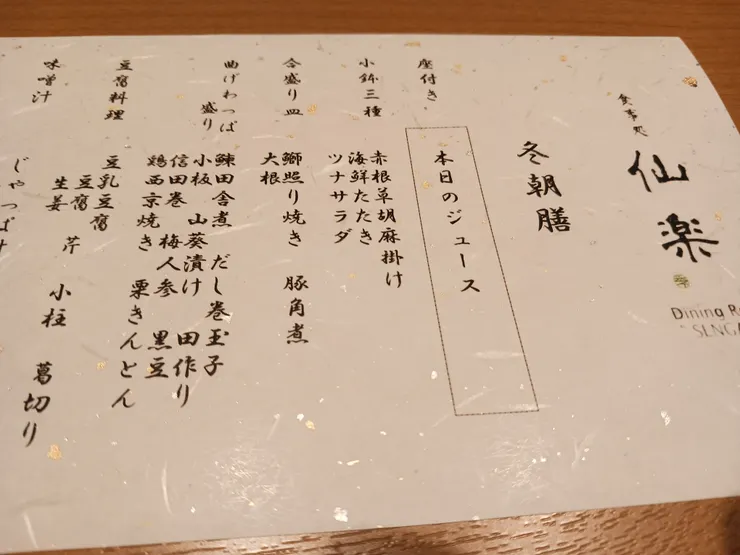 食事処
仙楽
Dining R
SENGA
冬朝膳
本日のジュース
座付き
小鉢三種
赤根草胡麻掛け
海鮮たたき
ツナサラダ
合盛り皿
鰤照り焼き 豚角煮
大根
曲げわっぱ
盛り
鰊田舎煮 だし巻玉子
小板 山葵漬け 田作り
信田巻 梅人参 黒豆
鶏西京焼き 栗きんとん
豆腐料理
豆乳豆腐
豆腐 芹 小柱 葛切り
生姜
味噌汁
じゃっぱ汁